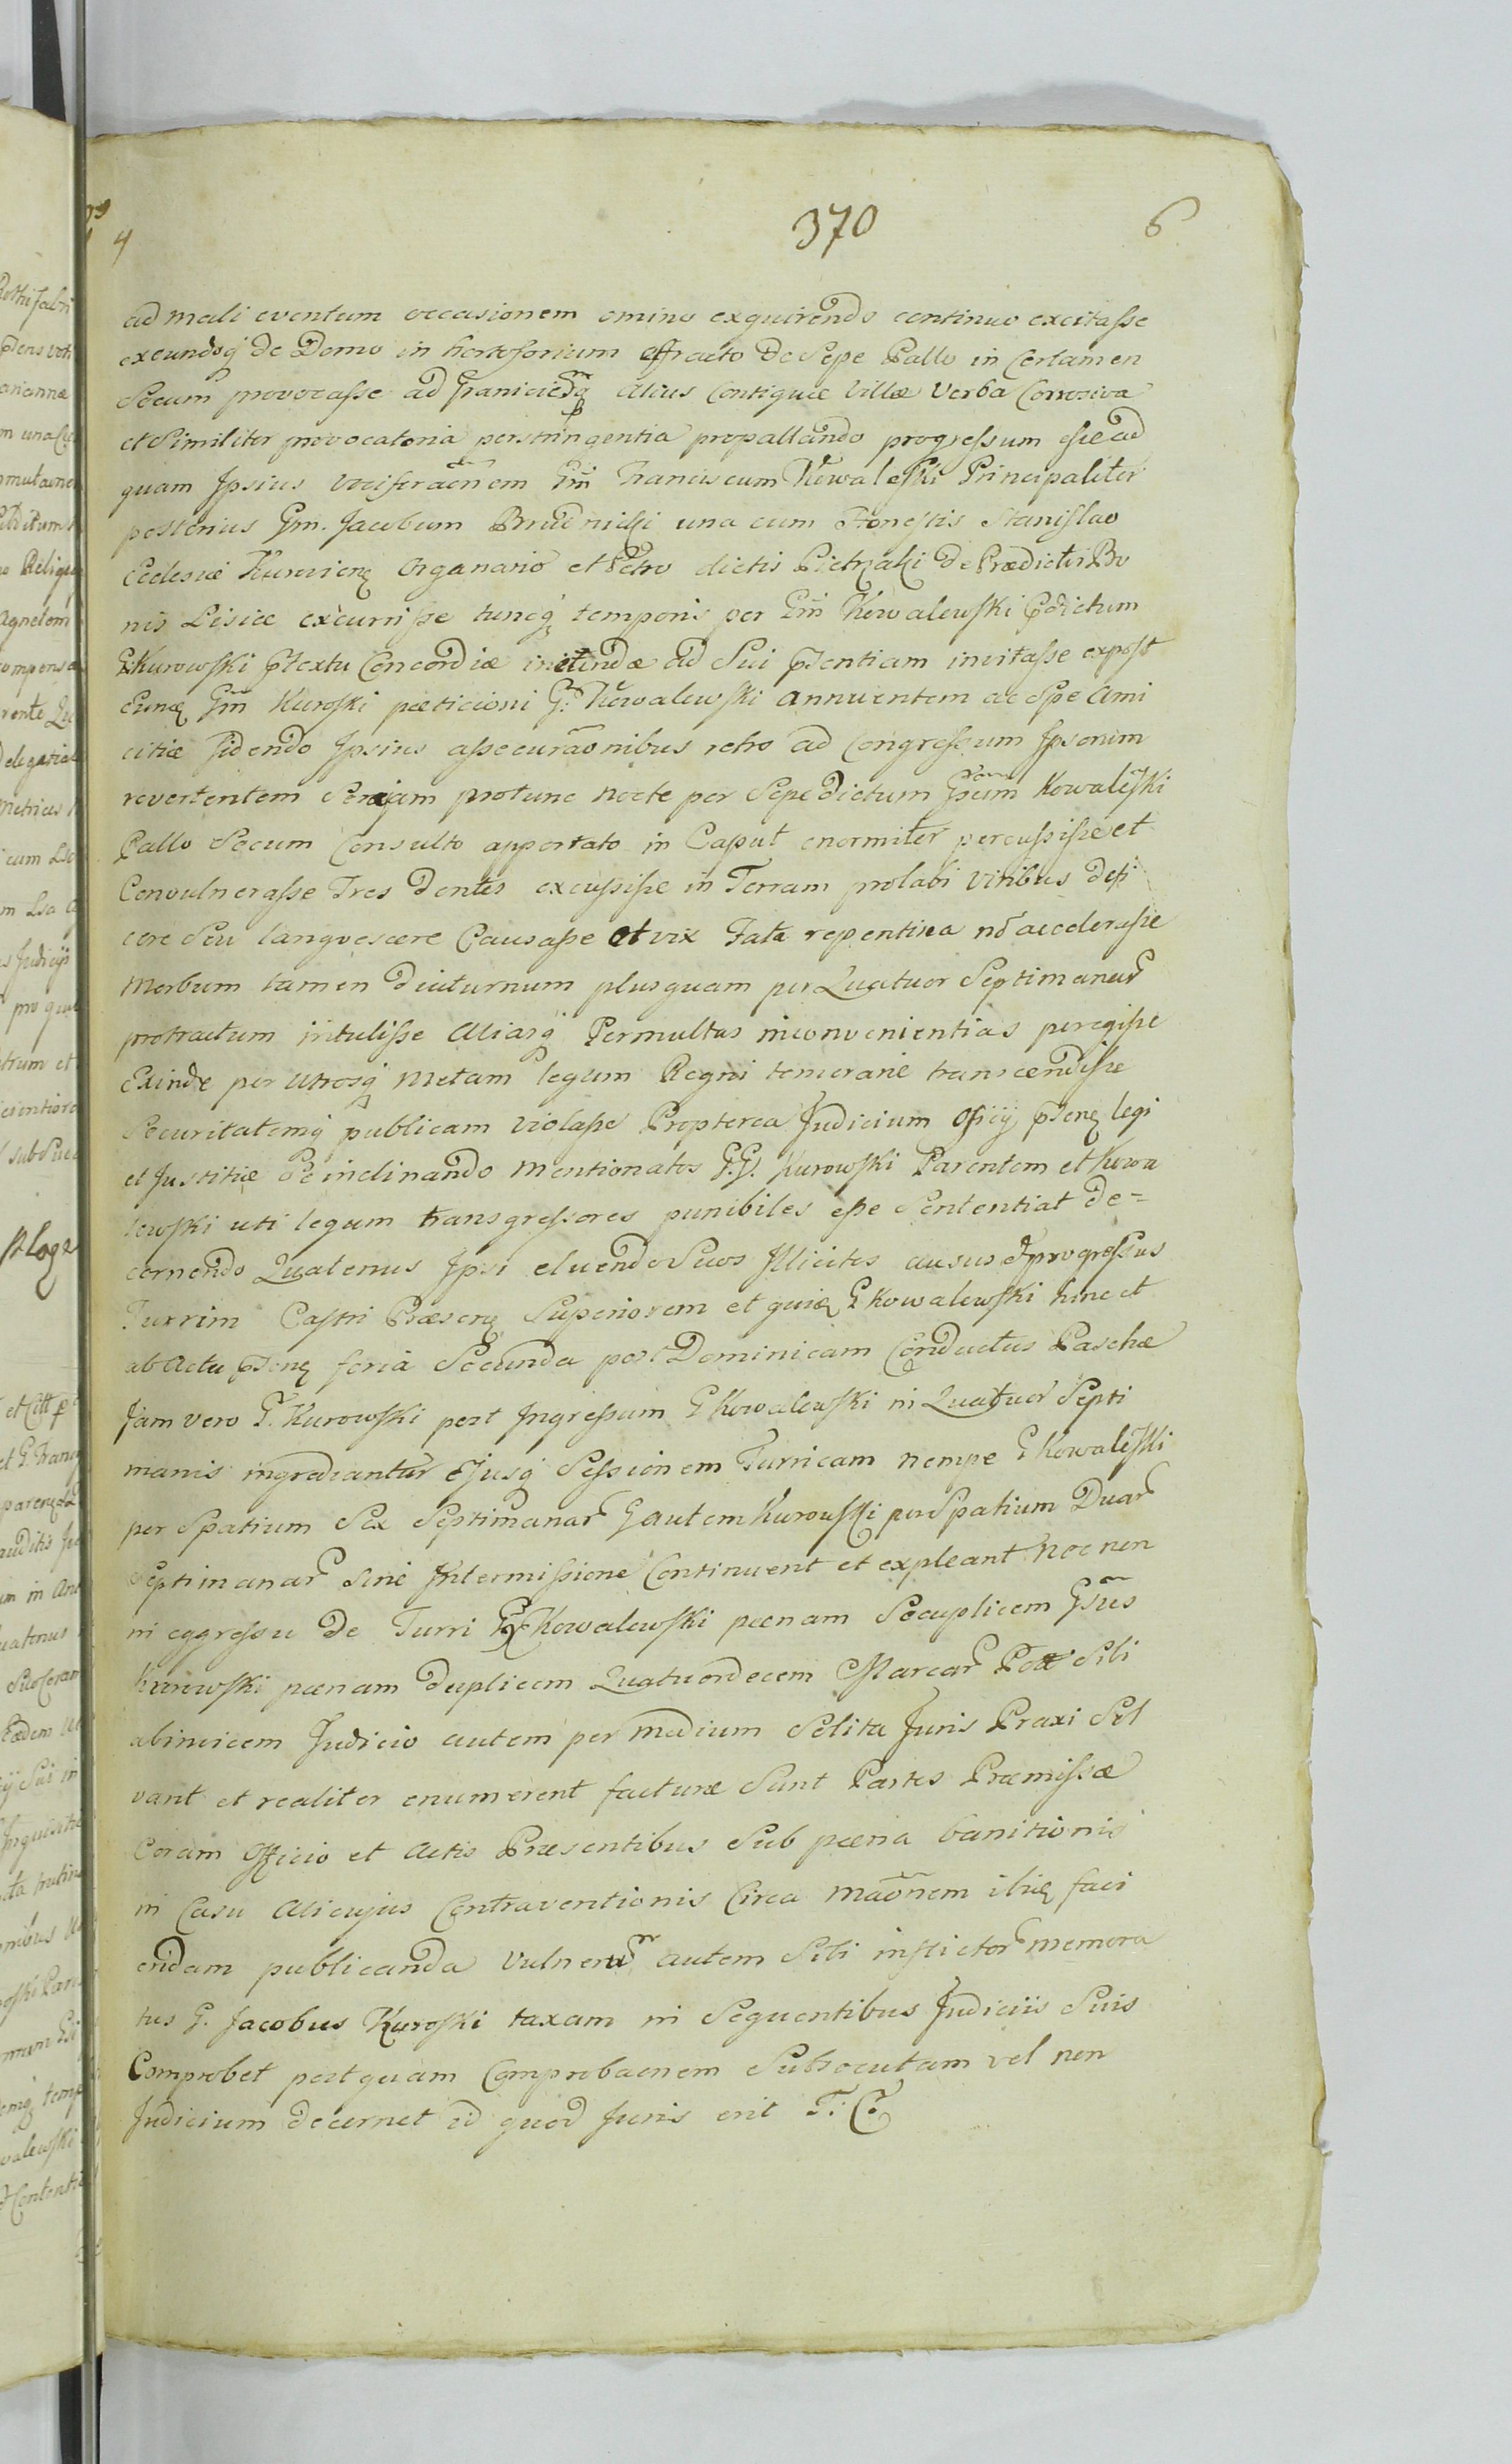 370
6
4
ad mali eventum occasionem omino exquirendo continuo excitasse
exeundoq de Domo in hortoforium effracto de Sepe Pallo in Certamen
Secum provocasse ad Graniciesq alius Contiguæ Villæ Verba Corrosiva
et Similiter provocatoria perstringentia propallando progressum esse ad
quam Ipsius vociferaōnem Gm̄ Franciscum Kowaleski Principaliter
posterius Gm. Jacobum Brudnicki una cum Honestis Stanislao
Ecclesiæ Kurovienę Organario et Petro dictis Pietrzaki de Prædictis Bo
nis Lisice excurrisse tuncq temporis per Gm̄ Kowalewski Pdictum
G Kurowski ptextu Concordiæ ineundæ ad Sui pdentiam invitasse expost
Eunę Gm̄ Kuroski pæticioni G. Kowalewski annuentem ac Spe Ami
citiæ fidendo Ipsius assecuraōnibus retro ad Congressum Ipsorum
revertentem Serajam protunc nocte per Sepe dictum Gsum Kowaleski
Pallo Secum Consulto apportato in Caput enormiter percussisse et
Convulnerasse Tres dentes excussisse in Terram prolabi viribus defi
cere Seu languescere Causasse et vix Fata repentina nō accelerasse
Morbum tamen diuturnum plusquam per Quatuor Septimanar
protractum intulisse Aliasq Permultas inconvenientias peregisse
Exinde per utrosq Metam legum Regni temerarie transcendisse
Securitatemq publicam violasse Propterea Judicium Officij pdenę legi
et Justitiæ Se inclinando Mentionatos G.G. Kurowski Parentem et Kowa
lewski uti legum transgressores punibiles esse Sententiat De=
cernendo Quatenus Ipsi eluendo Suos Illicitos ausus et progressus
Turrim Castri Præsenę Superiorem et quię G Kowalewski hinc et
ab Actu pdenę feria Secunda post Dominicam Conductus Paschæ
Jam vero G. Kurowski post Ingressum G Kowalewski in Quatuor Septi
manis ingrediantur Ejusq Sessionem Turricam nempe G Kowaleski
per Spatium Sex Septimanar G autem Kurowski per Spatium Duar
Septimanar Sine Intermissione Continuent et expleant Nec non
in eggressu de Turri G Kowalewski pœnam Secuplicem Gsus
Kurowski pœnam duplicem Quatuordecem Marcar Poll Sibi
abinvicem Judicio autem per medium Solita Juris Praxi Sol
vant et realiter enumerent facturæ Sunt Partes Præmissæ
Coram Officio et Actis Præsentibus Sub pœna banitionis
in Casu Alicujus Contraventionis Circa Maōnem illię faci
endam publicanda Vulnerum autem Sibi inflictor memora
tus G. Jacobus Kuroski taxam in Sequentibus Judiciis Suis
Comprobet post quam Comprobaonem Subsecutam vel non
Judicium decernet id quod Juris erit